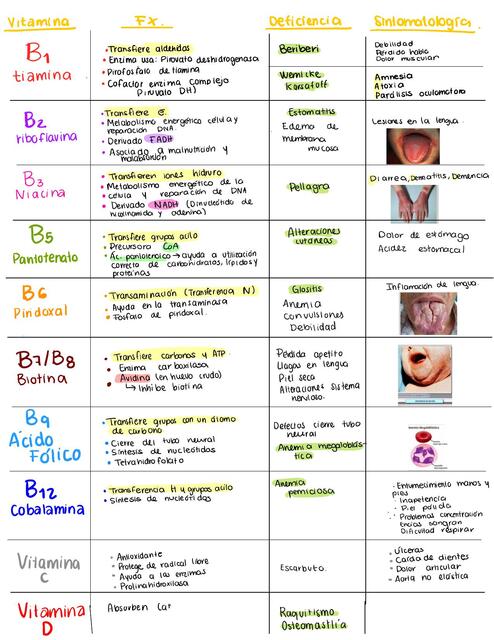 Vitamina Fx. Deficiencia Sintomatología
B1
tiamina
• Transfiere aldehidos
• Enzima usa: Piruvato deshidrogenasa
• Pirofosfato de tiamina
• Cofactor enzima complejo
Piruvato DH)
Beriberi
Wernicke
Korsakoff
Debilidad
Perdida habla
Dolor muscular
Amnesia
Atoxia
Parálisis oculomotora
B2
riboflavina
• Transfiere e-
• Metabolismo energético celula y
reparación DNA.
• Derivado FADH
• Asociado a malnutrición y
malabsorción
Estomatitis
Edema de
membrana
mucosa
Lesiones en la lengua.
B3
Niacina
• Transfieren iones hidruro
• Metabolismo energético de la
celula y reparación de DNA
• Derivado NADH (Dinucleótido de
nicotinamida y adenina)
Pellagra
Diarrea, Dermatitis, Demencia
B5
Pantotenato
• Transfiere grupos acilo
• Precursora CoA
• Ac. pantotenico → ayuda a utilización
correcta de carbohidratos, lípidos y
proteínas
Alteraciones
cutaneas
Dolor de estómago
Acidez estomacal
B6
Piridoxal
• Transaminación (Transferencia N)
• Ayuda en la transaminasa
• Fosfato de piridoxal.
Glositis
Anemia
Convulsiones
Debilidad
Inflamación de lengua.
B7/B8
Biotina
• Transfiere carbonos y ATP
• Enzima carboxilasa
• Avidina (en huevo crudo)
↳ Inhibe biotina
Pérdida apetito
Llagas en lengua
Piel seca
Alteraciones sistema
nervioso.
B9
Ácido
Fólico
• Transfiere grupos con un átomo
de carbono
• Cierre del tubo neural
• Síntesis de nucleótidos
• Tetrahidrofolato
Defectos cierre tubo
neural
Anemia megaloblás-
tica
B12
Cobalamina
• Transferencia H y grupos acilo
• Síntesis de nucleótidos
Anemia
perniciosa
· Entumecimiento manos y
pies
· Inapetencia
· Piel pálida
· Problemas concentración
Encías sangran
Dificultad respirar
Vitamina
C
• Antioxidante
• Protege de radical libre
• Ayuda a las enzimas
• Prolinahidroxilasa
Escarbuto.
• Úlceras
• Caída de dientes
• Dolor articular
• Aorta no elástica
Vitamina
D
Absorben Ca+
Raquitismo
Osteomastlia